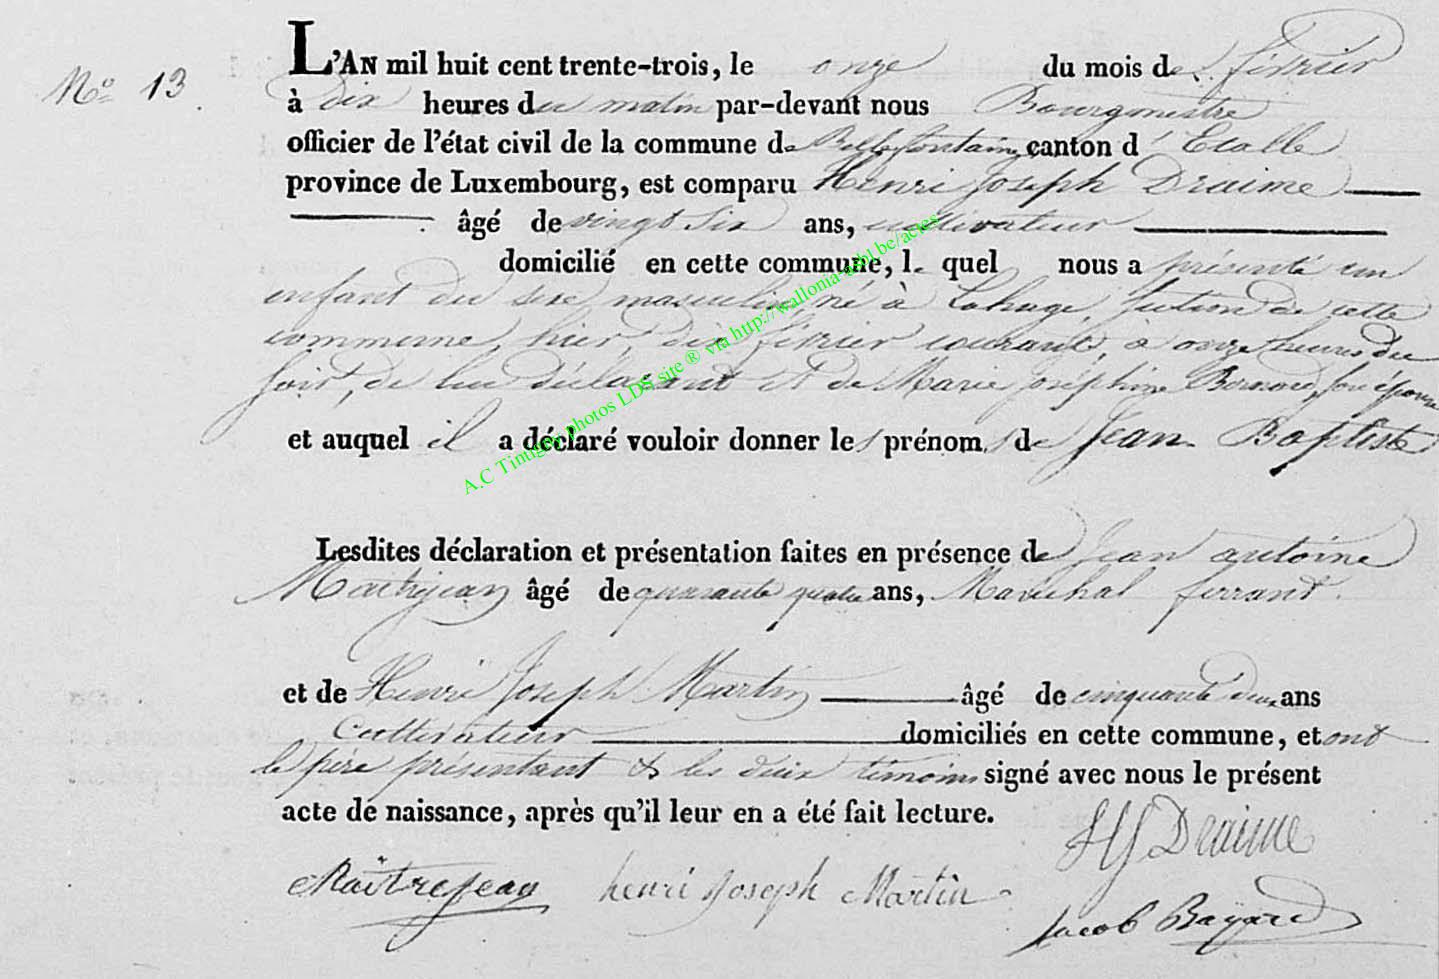 N° 13
L'AN mil huit cent trente-trois, le onze du mois de février
à dix heures du matin par-devant nous Bourgmestre
officier de l'état civil de la commune de Bellefontaine canton d'Etalle
province de Luxembourg, est comparu Henri Joseph Draime
âgé de vingt six ans, cultivateur
domicilié en cette commune, le quel nous a présenté un
enfant du sexe masculin né à Lahage, section de cette
commune, hier dix février courant, à onze heures du
soir, de lui déclarant et de Marie Joséphine Bernard, son épouse
et auquel il a déclaré vouloir donner les prénoms de Jean Baptiste
Lesdites déclaration et présentation faites en présence de Jean antoine
Maitrejean âgé de quarante quatre ans, Maréchal ferrant.
et de Henri Joseph Martin âgé de cinquante deux ans
Cultivateur domiciliés en cette commune, et ont
le père présentant & les deux témoins signé avec nous le présent
acte de naissance, après qu'il leur en a été fait lecture.
HJ Draime
Maîtrejean henri Joseph Martin
Jacob Bayard
A.C Tintigny photos LDS site ® via http://wallonia-asbl.be/actes